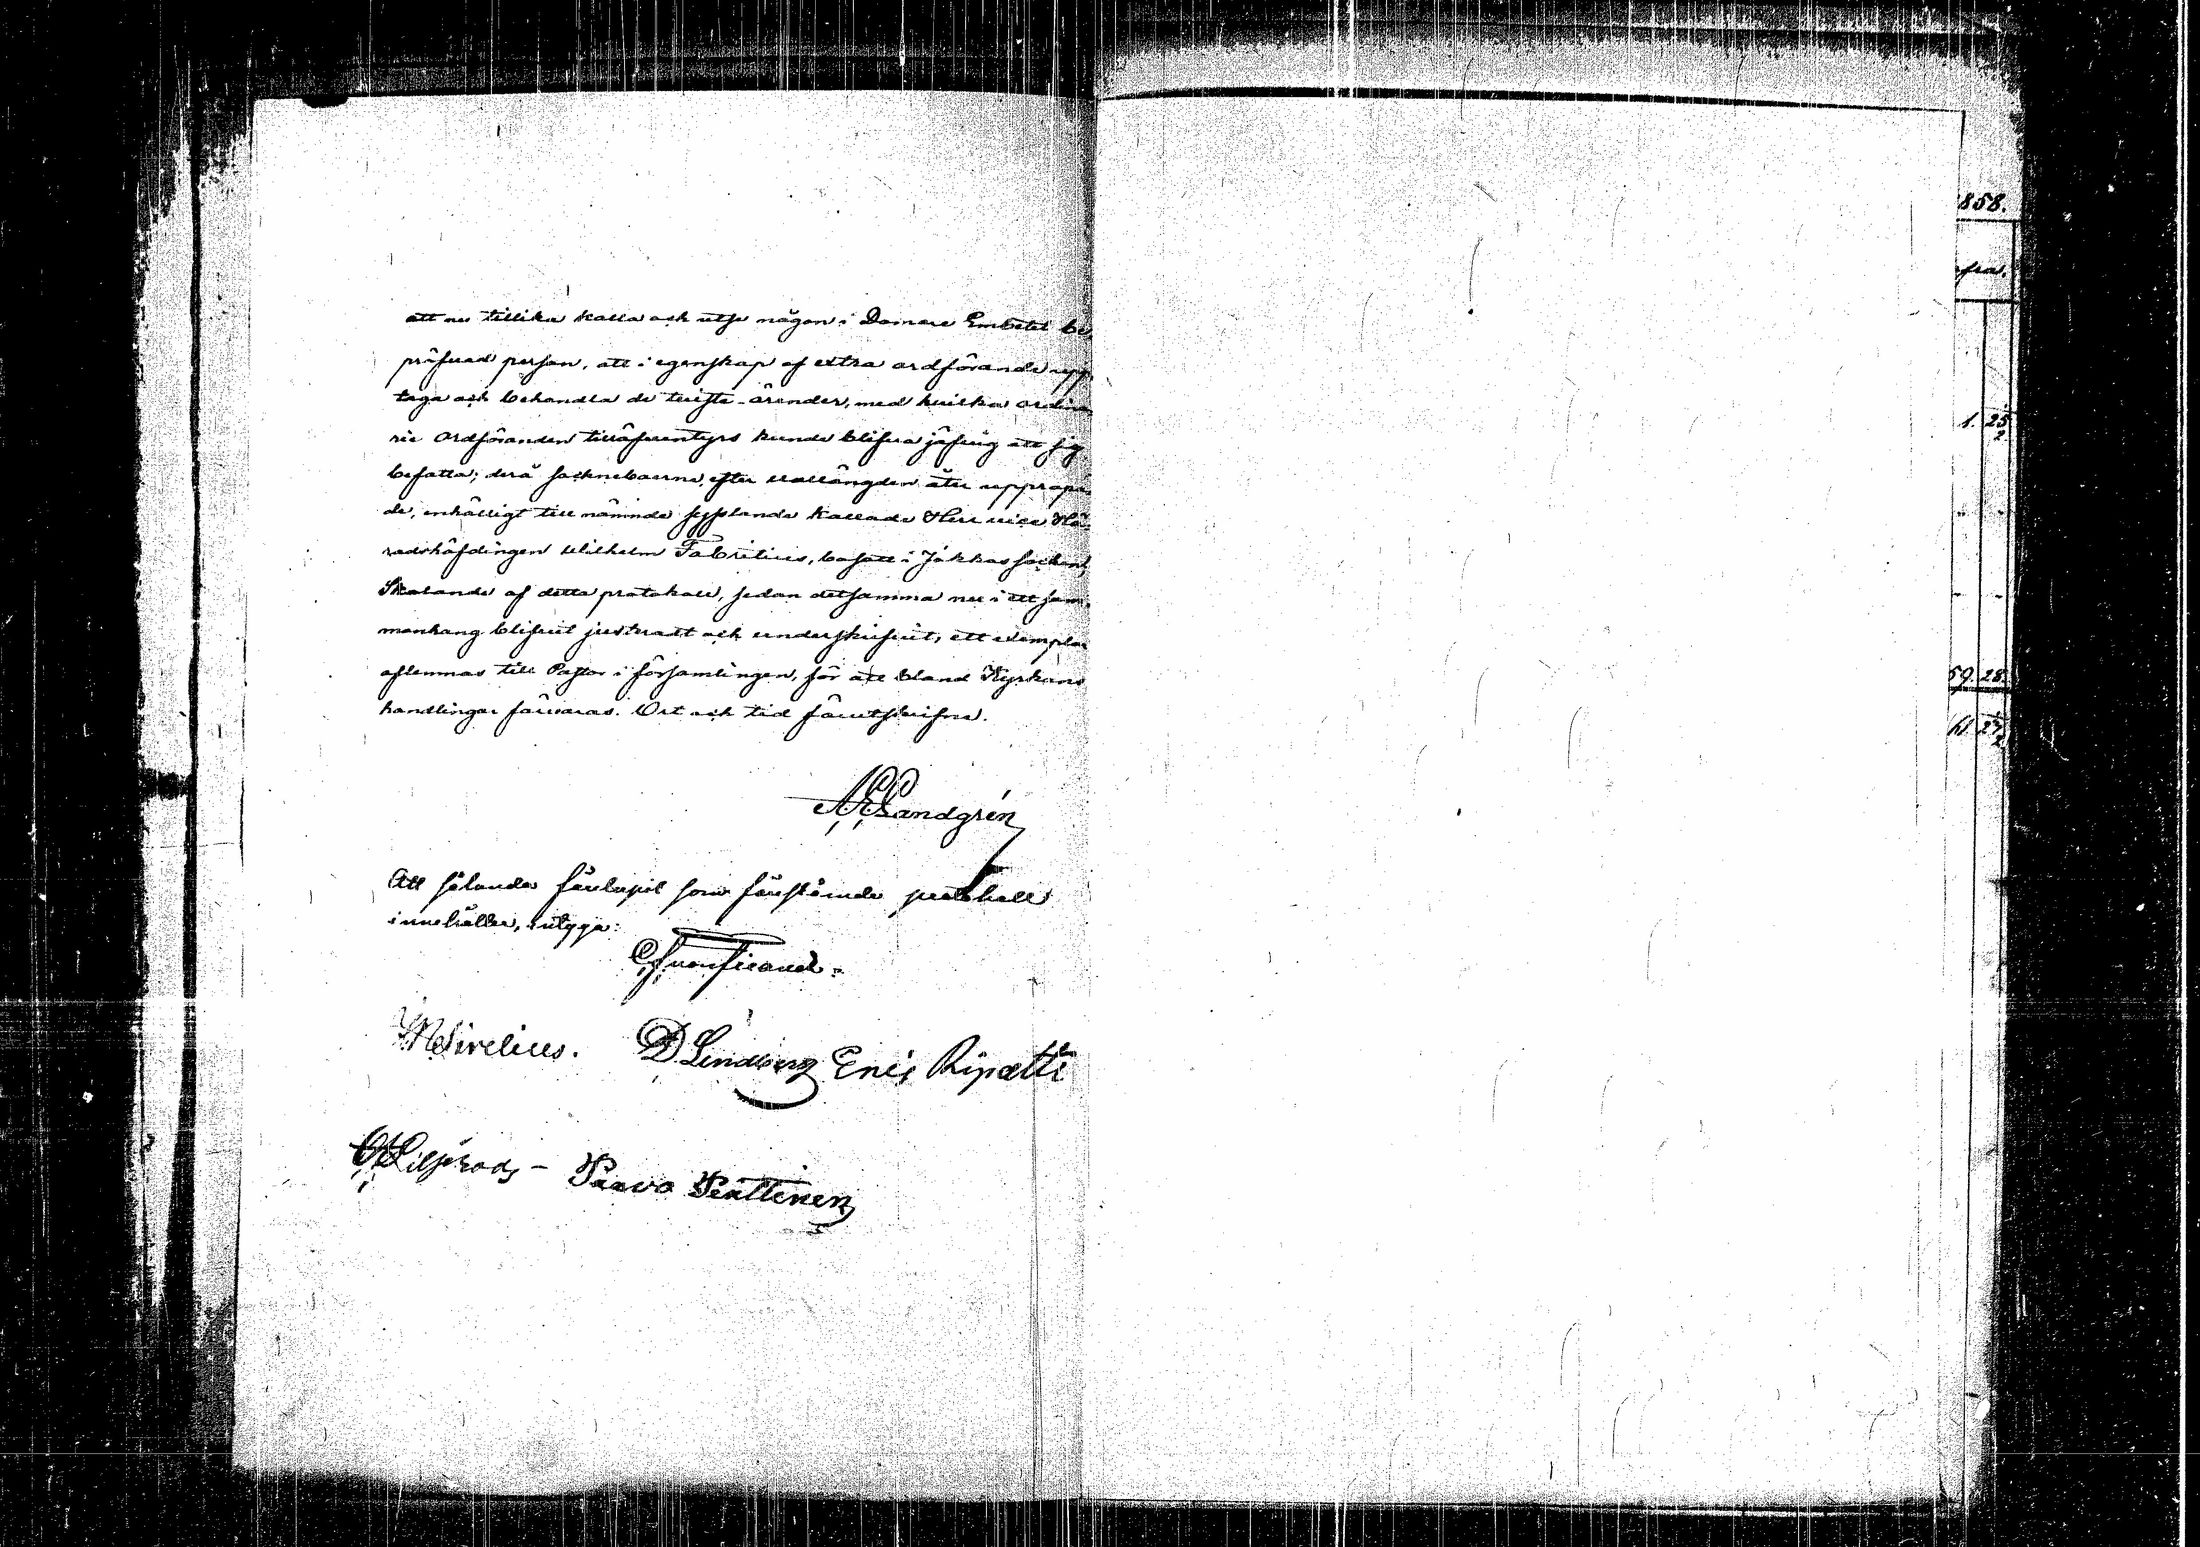 att nu tillika kalla och utse någon i Domare Embetet be
pröfwad person, att i egenskap af extra ordförande upp
taga och behandla de twiste-ärender, med hwilka ordina
rie Ordföranden tilläfwentyrs kunde blifwa jäfwig att sig
befatta; derå sockneboerne, efter vallängden åter uppropa
de, enhälligt till nämnde sysslande kallade Herr vice Hä
radshöfdingen Wilhelm Fabritius, bosatt i Jokkas socken,
Skolande af detta protokoll, sedan detsamma nu i ett sam
manhang blifwit justeradt och underskrifwit, ett exemplar
aflemnas till Pastor i församlingen, för att bland Kyrkans
handlingar förwaras. Ort och tid förutskrifne.
Sandgrén
Att sålunda förelupit som förestående protokoll
innehåller, intyga:
Sirelius. D. Lindberg Enis Ripatti
Paavo Penttinen
1858.
1. 25
2
59. 28.
61 27
2